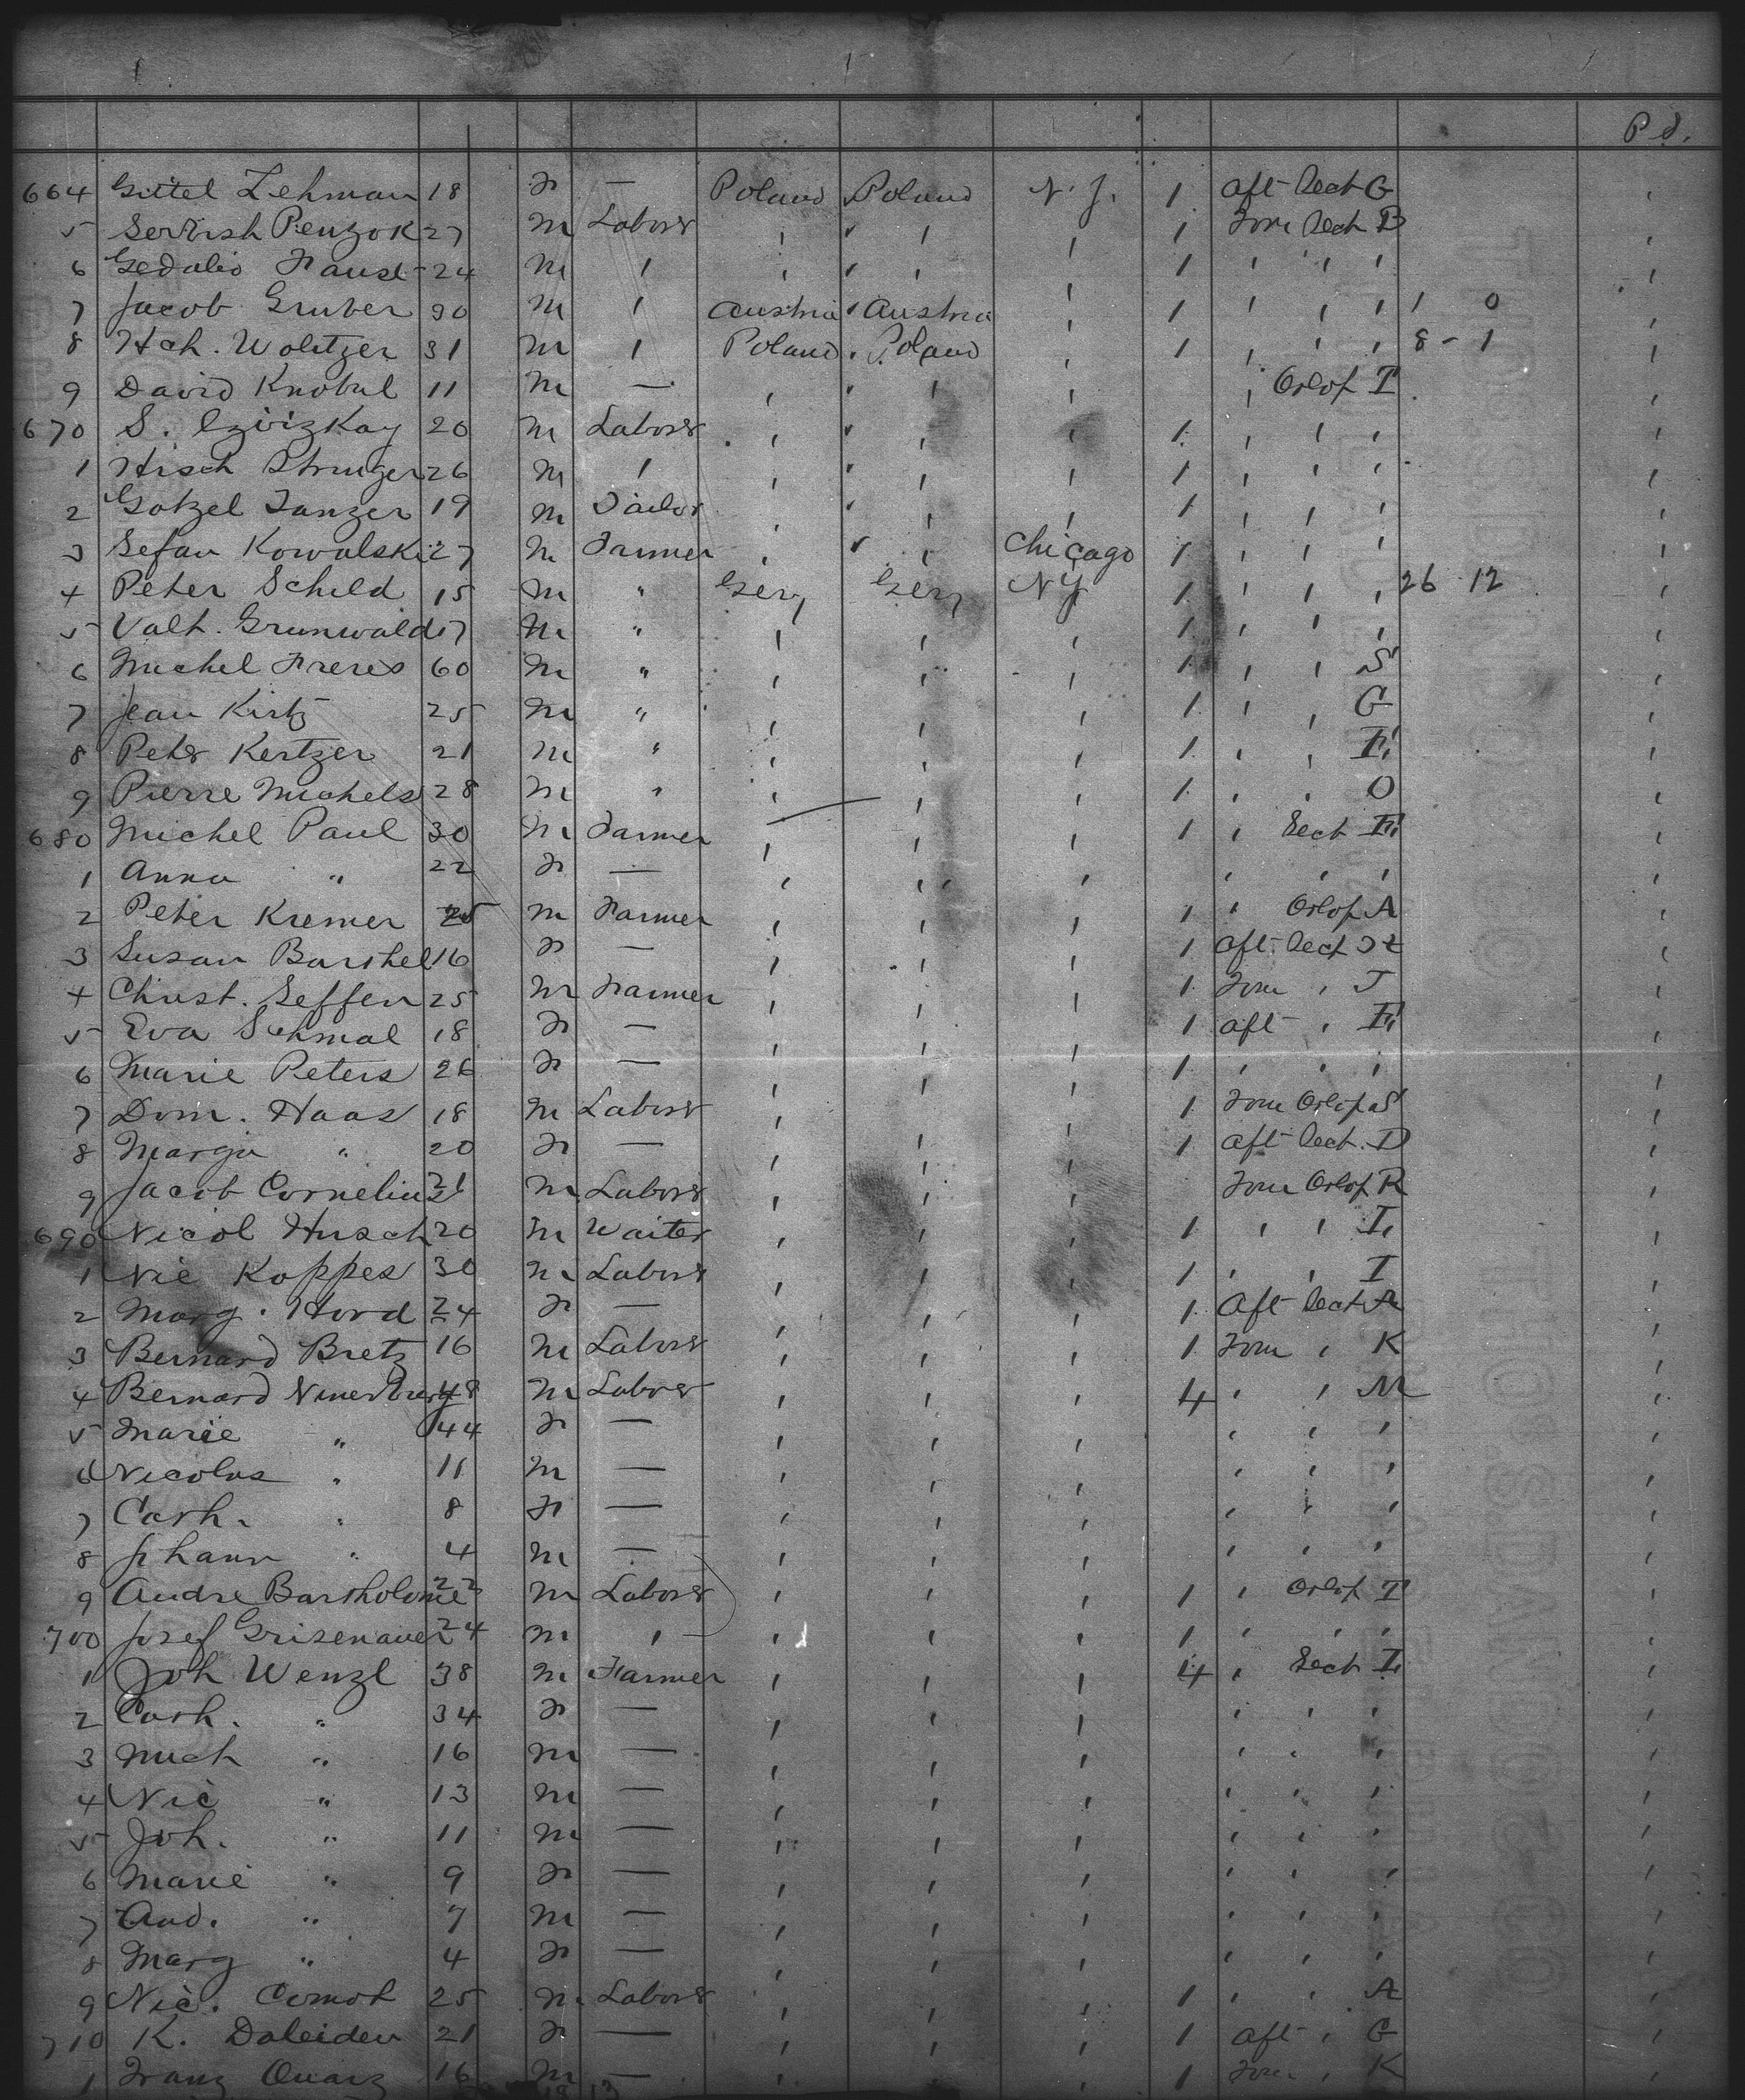 P. S.
664 Gittel Lehman 18 F — Poland Poland N. J. 1 Aft Sect G
5 Penzok 27 M Labour " " " 1 Forw Sect B
6 Gedalio 24 M " " " " 1 " " "
7 Jacob Gruber 30 M " Austria Austria " 1 " " " 1 0
8 Hch. Wolitzer 31 M " Poland Poland " 1 " " " 8 - 1
9 David Knobul 11 M — " " " " Orlop T
670 S. 20 M Labour " " " 1 " " "
1 Hisch 26 M " " " " 1 " " "
2 Gotzel Tanzer 19 M Tailor " " " 1 " " "
3 Sefan Kowalski 27 M Farmer " " Chicago 1 " " "
4 Peter Schild 15 M " Gery Gery NY 1 " " " 26 12
5 Valt. Grunwald 17 M " " " " 1 " " "
6 Michel Freres 60 M " " " " 1 " " S
7 Jean Kirtz 25 M " " " " 1 " " G
8 Peter Kertzer 21 M " " " " 1 " " E
9 Pierre Michels 28 M " " " " 1 " " O
680 Michel Paul 30 M Farmer " " " 1 " Sect E
1 Anna " 22 F — " " " " " "
2 Peter Kremer 25 M Farmer " " " 1 " Orlop A
3 Susan Barthel 16 F — " " " 1 Aft Sect H
4 Christ. Seffen 25 M Farmer " " " 1 Forw " J
5 Eva Schmal 18 F — " " " 1 Aft " E
6 Marie Peters 26 F — " " " 1 " " "
7 Dom. Haas 18 M Labour " " " 1 Forw Orlop S
8 Margu " 20 F — " " " 1 Aft Sect. D
9 Jacob Cornelius 21 M Labour " " " Forw Orlop R
690 Nicol Husch 20 M Waiter " " " 1 " " L
1 Nic Koppes 30 M Labour " " " 1 " " I
2 Marg. Hord 24 F — " " " 1 Aft Sect A
3 Bernard Bretz 16 M Labour " " " 1 Forw " K
4 Bernard 48 M Labour " " " 4 " " M
5 Marie " 44 F — " " " " " "
6 Nicolas " 11 M — " " " " " "
7 Cath. " 8 F — " " " " " "
8 Johann " 4 M — " " " " " "
9 Andre Bartholome 22 M Labour " " " 1 " Orlop T
700 Josef Grisenauer 24 M " " " " 1 " " "
1 Joh Wenzl 38 M Farmer " " " 4 " Sect L
2 Cath. " 34 F — " " " " " "
3 Mich " 16 M — " " " " " "
4 Nic " 13 M — " " " " " "
5 Joh. " 11 M — " " " " " "
6 Marie " 9 F — " " " " " "
7 And. " 7 M — " " " " " "
8 Marg " 4 F — " " " " " "
9 Nic. Comot 25 M Labour " " " 1 " " A
710 K. Daleiden 21 F — " " " 1 Aft " G
1 Franz Quarz 16 M — " " " 1 Forw " K